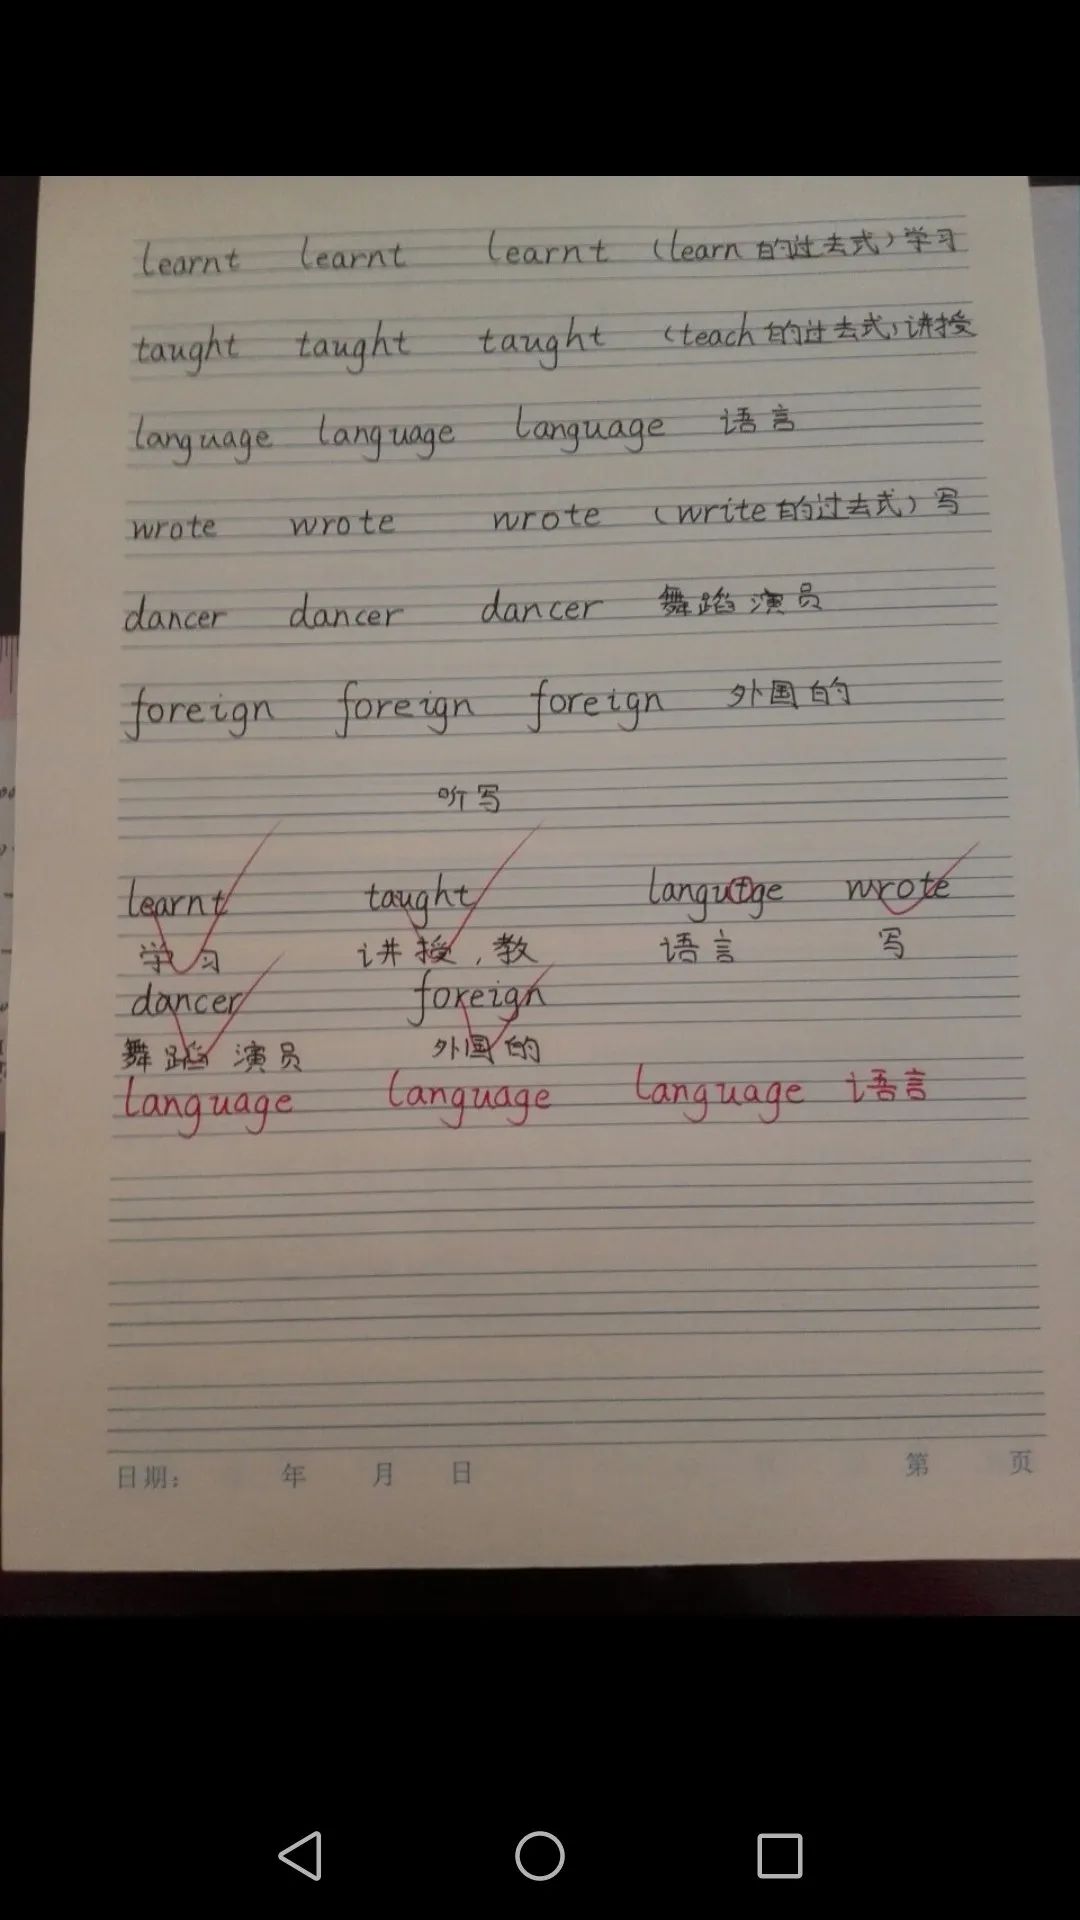 learnt learnt learnt (learn 的过去式) 学习
taught taught taught (teach 的过去式) 讲授
language language language 语言
wrote wrote wrote (write 的过去式) 写
dancer dancer dancer 舞蹈演员
foreign foreign foreign 外国的
听写
learnt taught wrote
学习 讲授,教 语言 写
dancer foreign
舞蹈演员 外国的
language language language 语言
日期: 年 月 日 第 页